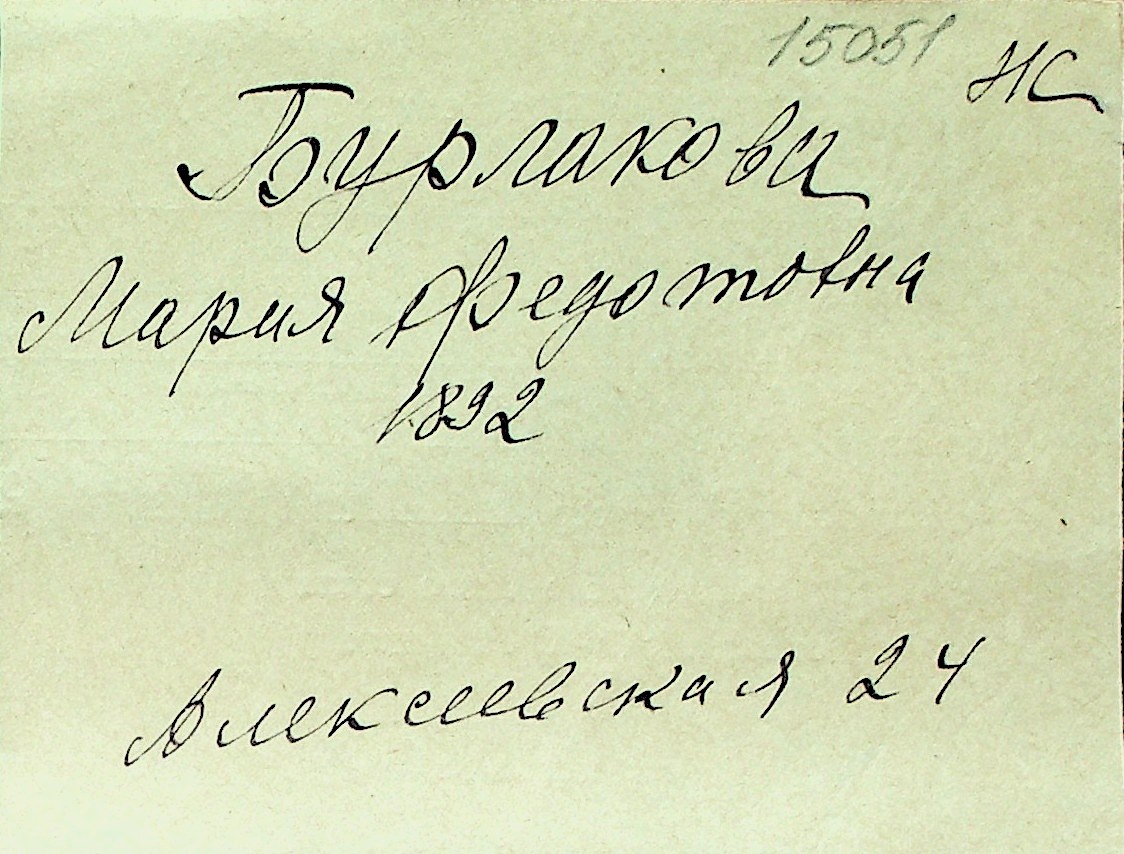 15051 НС
Бурлакова
Мария Федотовна
1892
Алексеевская 24